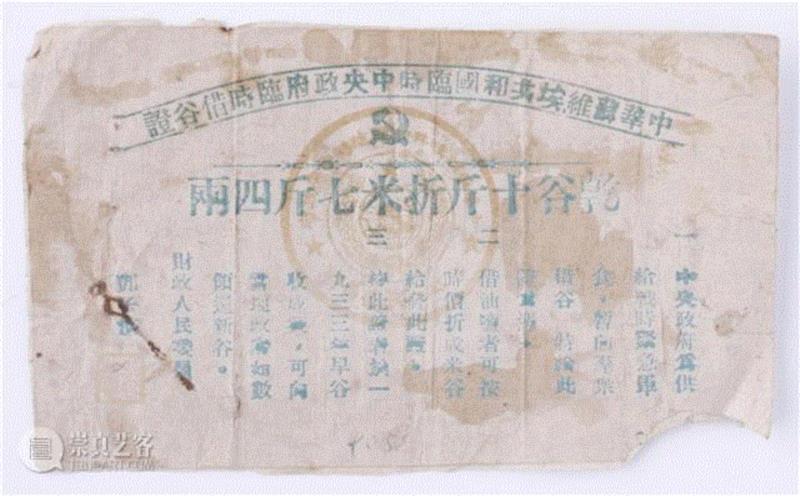 中華蘇維埃共和國臨時中央政府臨時借谷證
乾谷十斤折米七斤四兩
一 中央政府為供
給戰時緊急軍
食，暫向羣眾
借谷，特給此
二 借油鹽者可按
時價折成米谷
給發此證。
三 持此證者於一
九三三年早谷
收成後，可向
當地政府如數
領還新谷。
財政人民委員
鄧子恢
崇真艺客